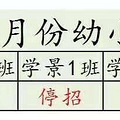 月份幼小
班 学景1班 学
停招